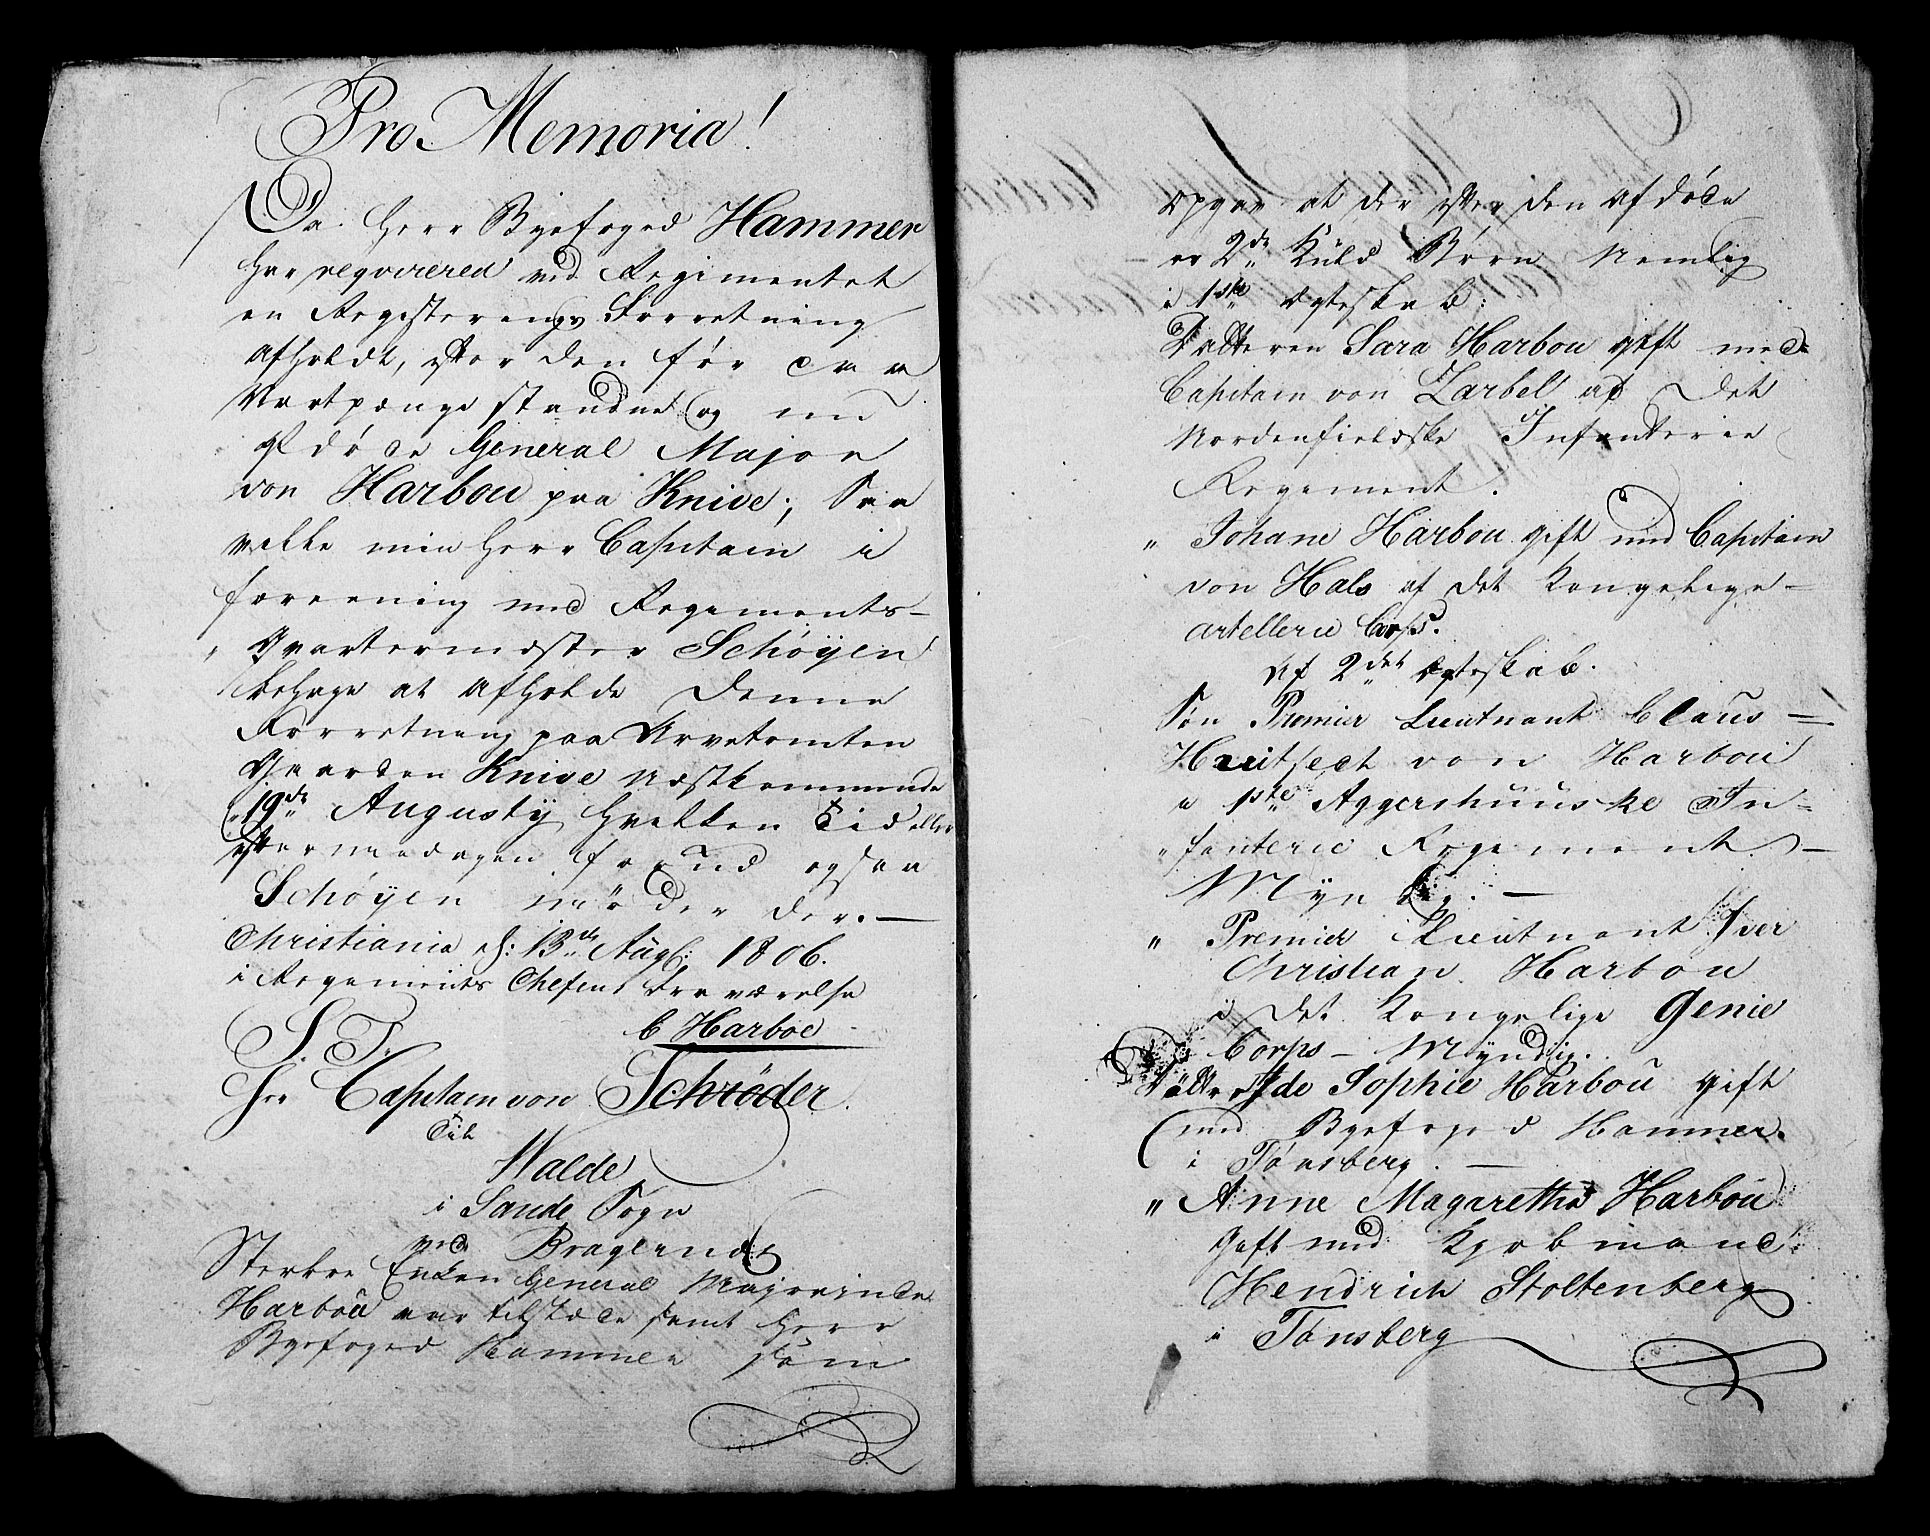 Pro Memoria!
Da Herr Byefoged Hammer
har reqvirered ved Regimentet
en Registerings Forretning
afholdt, efter den før paa
Vartpænge standne og nu
afdøde General Major
von Harbou paa Knive; Saa
velle min Herr Capitain i
foreening med Regements-
Qvartermester Schøyen
behage at afholde denne
Forretning paa Arvetomten
Gaarden Knive næstkommende
19de Augusty hvilken Tid eller
eftermeedagen forud ogsaa
Schøyen møder der. —
Christiania d: 13de Augs: 1806.
i Regements Chefens fraværelse
C Harboe
S. T.
Hr Capitain von Schrøder.
Til
Walde
i Sande Sogn
ved Bragernes
Sterboe Enken General Majorinde
Harbou var tilstæde samt Herr
Byefoged Hammer som
opgav at der efter den afdøde
er 2de Kuld Børn Nemlig
i 1ste Ægteskab:
Datteren Sara Harbou gift med
Capitain von Zarbel af det
Nordenfieldske Infanterie
Regement.
" Johane Harbou gift med Capitain
von Hals af det Kongelige —
artellerie Corps.
Af 2det Ægteskab.
Søn Premier Lieutnant Claus —
Hvitfect von Harbou
i 1ste Aggershuuske In-
fanterie Regement. —
Myndig. —
" Premier Lieutnant Iver
Christian Harbou
i det Kongelige Genie
Corps — Myndig.
Datter Ide Sophie Harbou gift
med Byefoged Hammer.
i Tønsberg. —
" Anne Magarethe Harbou
Gift med Kjøbmand
Hendrich Stoltenberg
i Tønsberg